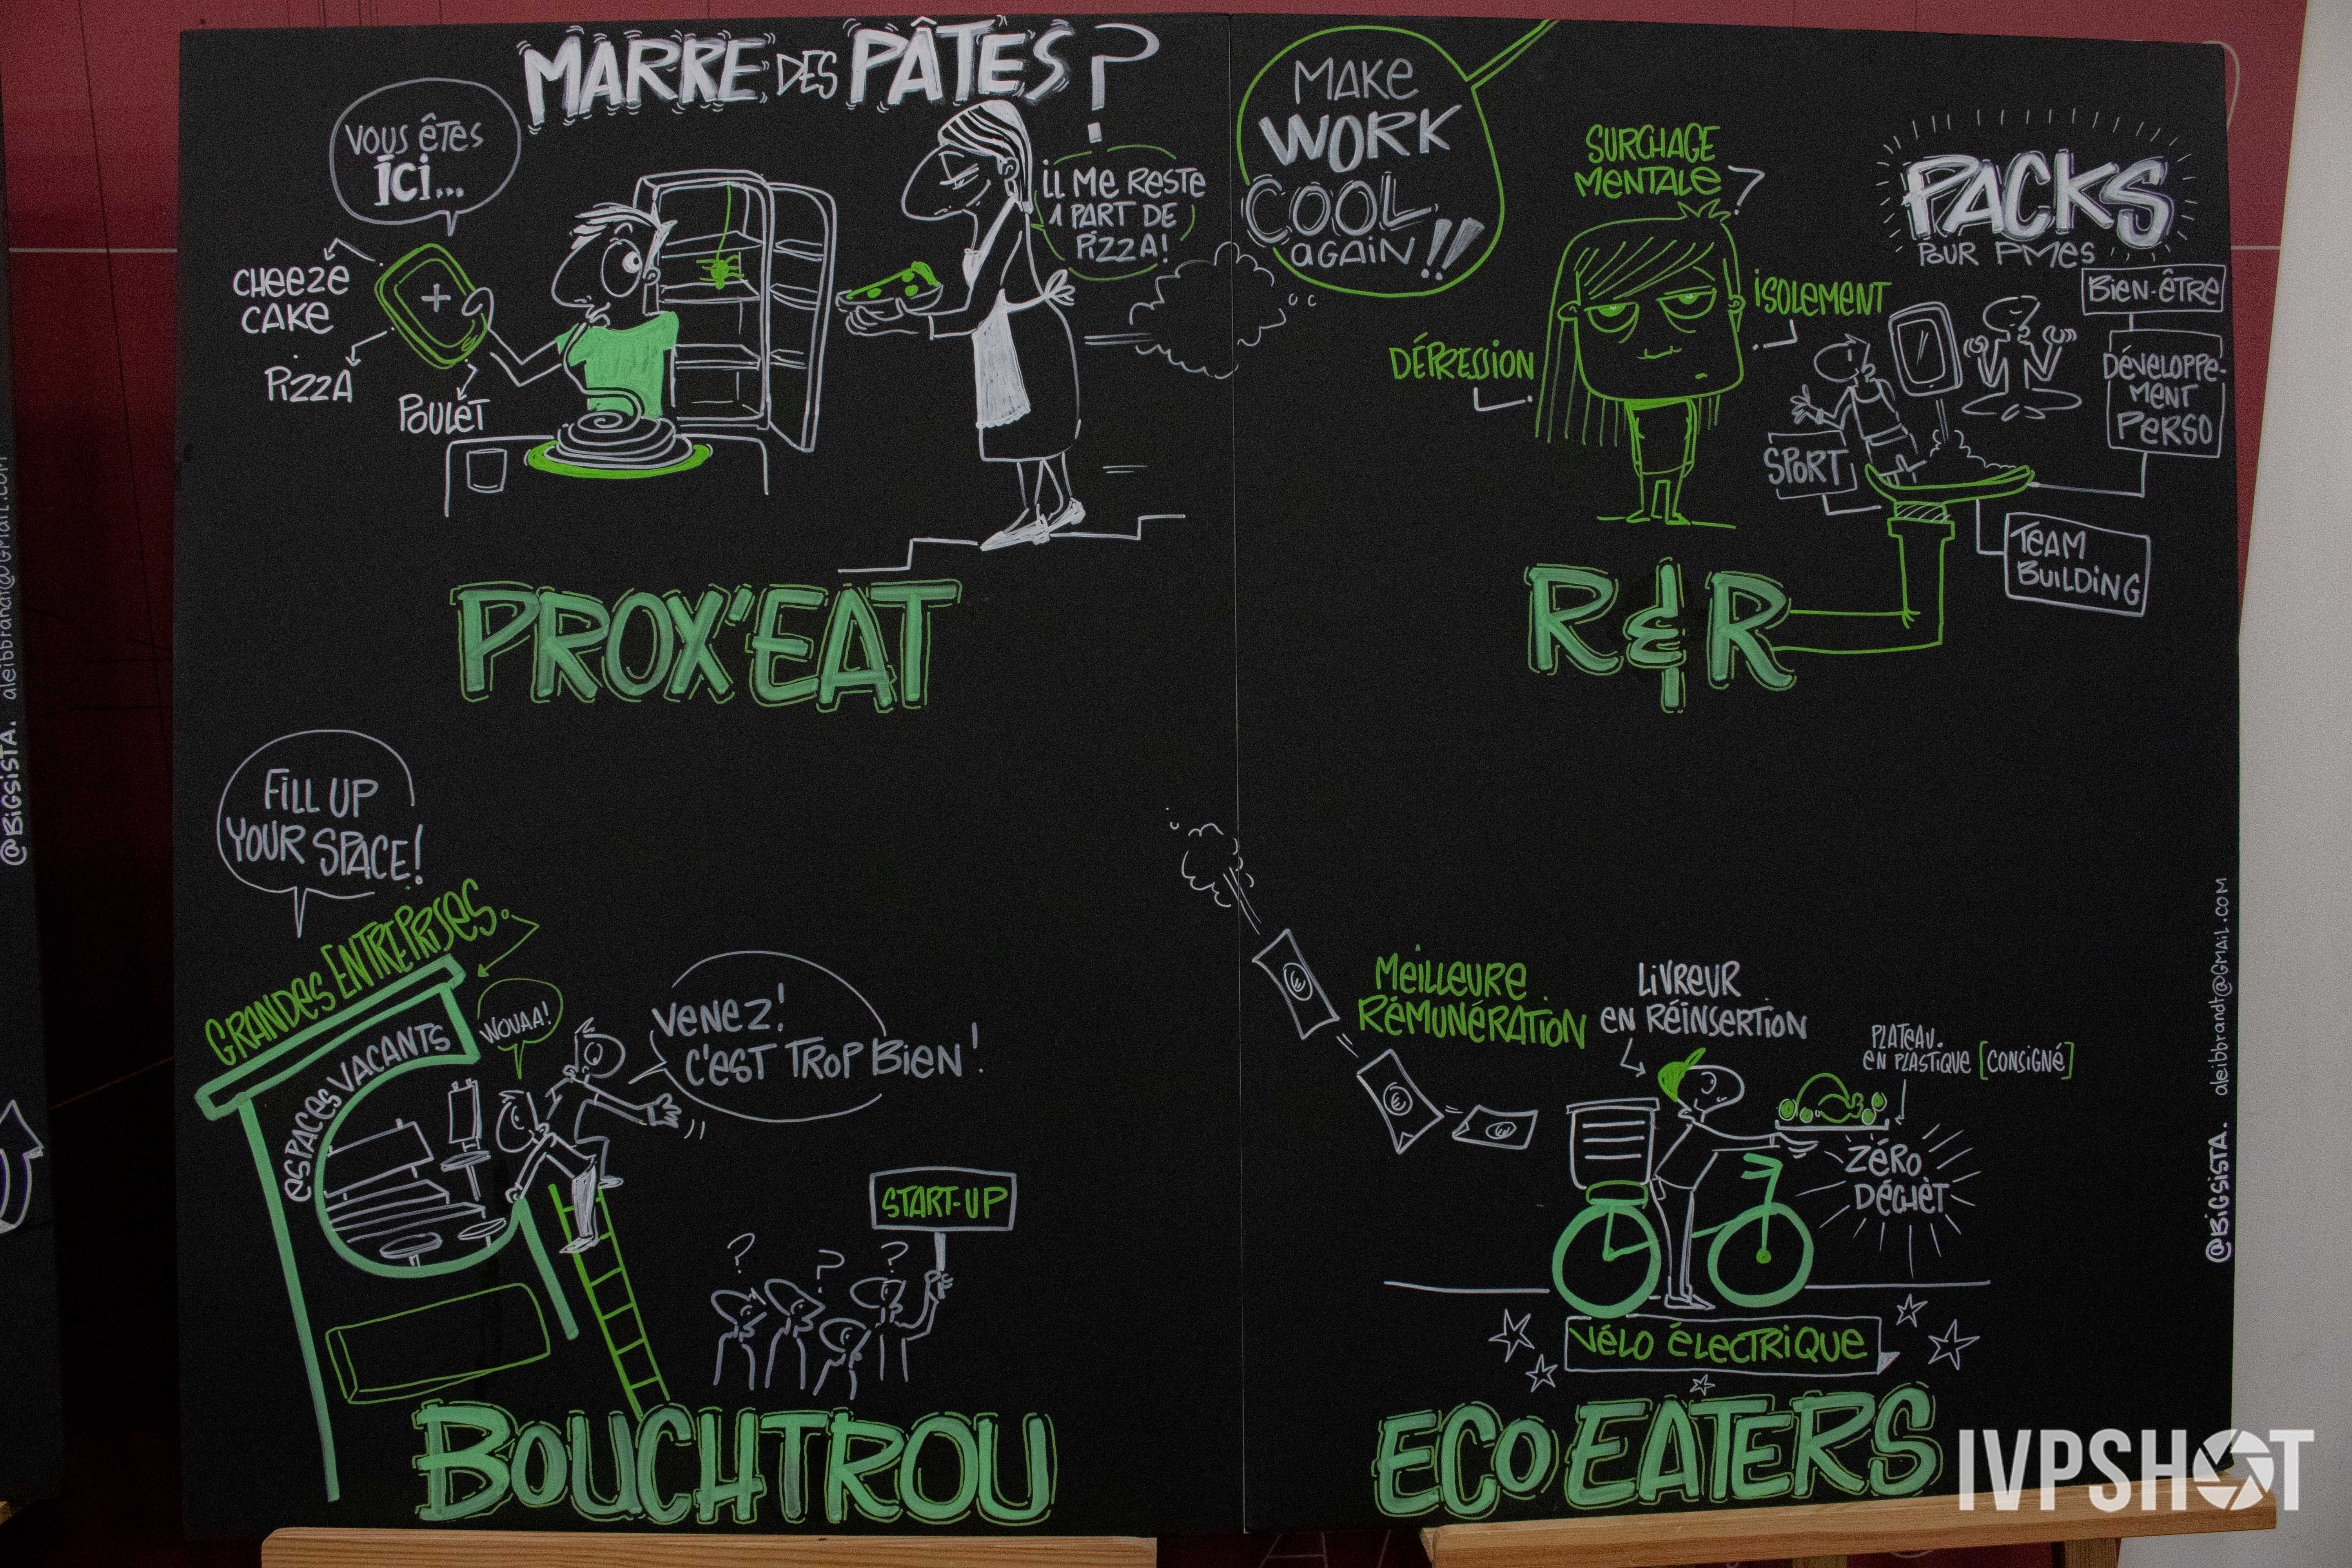 MARRE DES PÂTES ?
VOUS ÊTES
ICI...
CHEEZE
CAKE
PIZZA
POULET
IL ME RESTE
1 PART DE
PIZZA !
PROX'EAT
MAKE
WORK
COOL
AGAIN !!
SURCHAGE
MENTALE ?
ISOLEMENT
DÉPRESSION
PACKS
POUR PMES
BIEN-ÊTRE
DÉVELOPPE-
MENT
PERSO
SPORT
TEAM
BUILDING
R & R
FILL UP
YOUR SPACE !
GRANDES ENTREPRISES.
ESPACES VACANTS
WOUAA !
VENEZ !
C'EST TROP BIEN !
START-UP
? ? ?
BOUCHTROU
MEILLEURE
RÉMUNÉRATION
LIVREUR
EN RÉINSERTION
PLATEAU.
EN PLASTIQUE [CONSIGNÉ]
ZÉRO
DÉCHÈT
VÉLO ÉLECTRIQUE
ECO EATERS
@BIGSISTA. aleibbrandt@GMAIL.COM
@BIGSISTA. aleibbrandt@GMAIL.COM
IVPSHOT